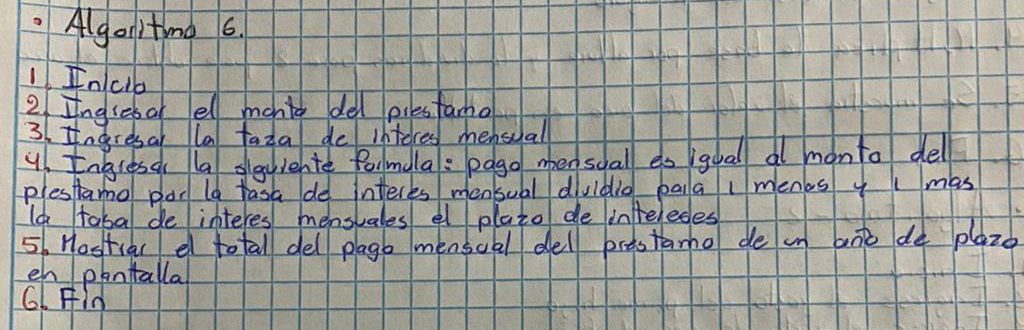 • Algoritmo 6.
1. Inicio
2. Ingresar el monto del prestamo
3. Ingresar la taza de interes mensual
4. Ingresar la siguiente formula: pago mensual es igual al monto del
prestamo por la tasa de interes mensual dividio para 1 menos y 1 mas
la tasa de interes mensuales el plazo de intereses
5. Mostrar el total del pago mensual del prestamo de un año de plazo
en pantalla
6. Fin